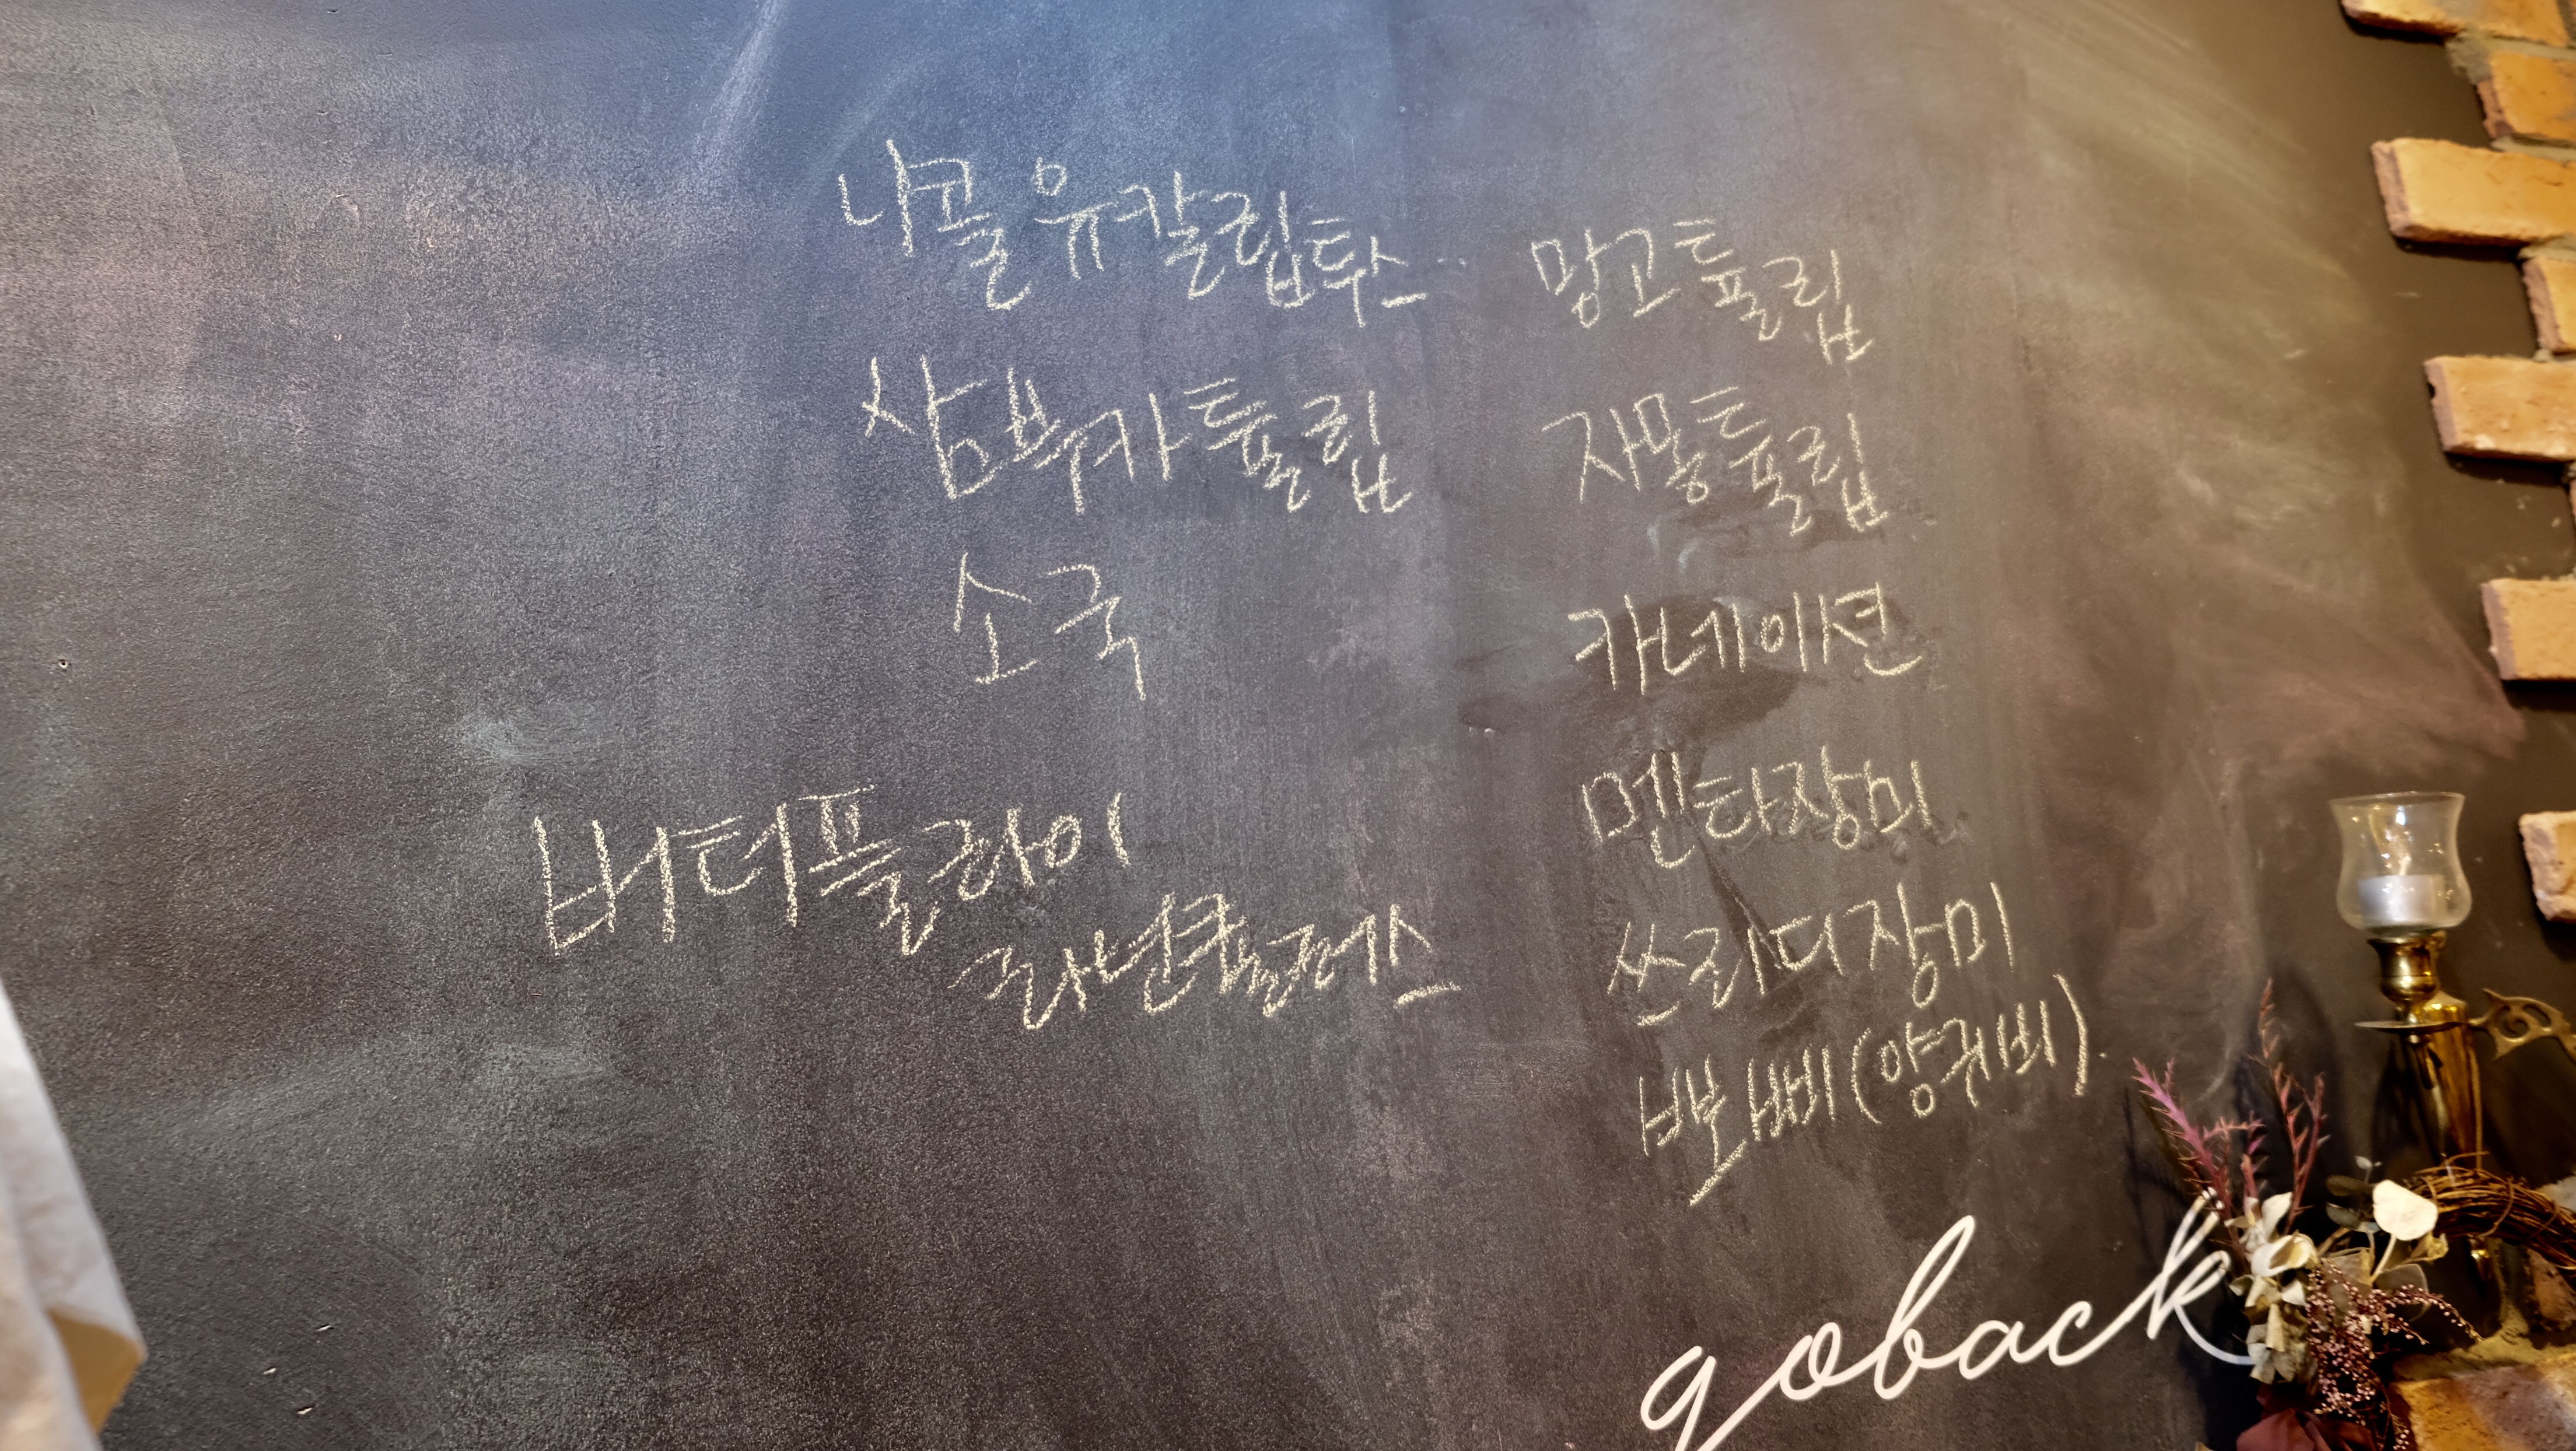 나콜 유칼립투스
삼부카 튤립
소국
버터플라이
라넌큘러스
망고튤립
자몽튤립
카네이션
멘타장미
쓰리디장미
뽀삐(양귀비)
goback